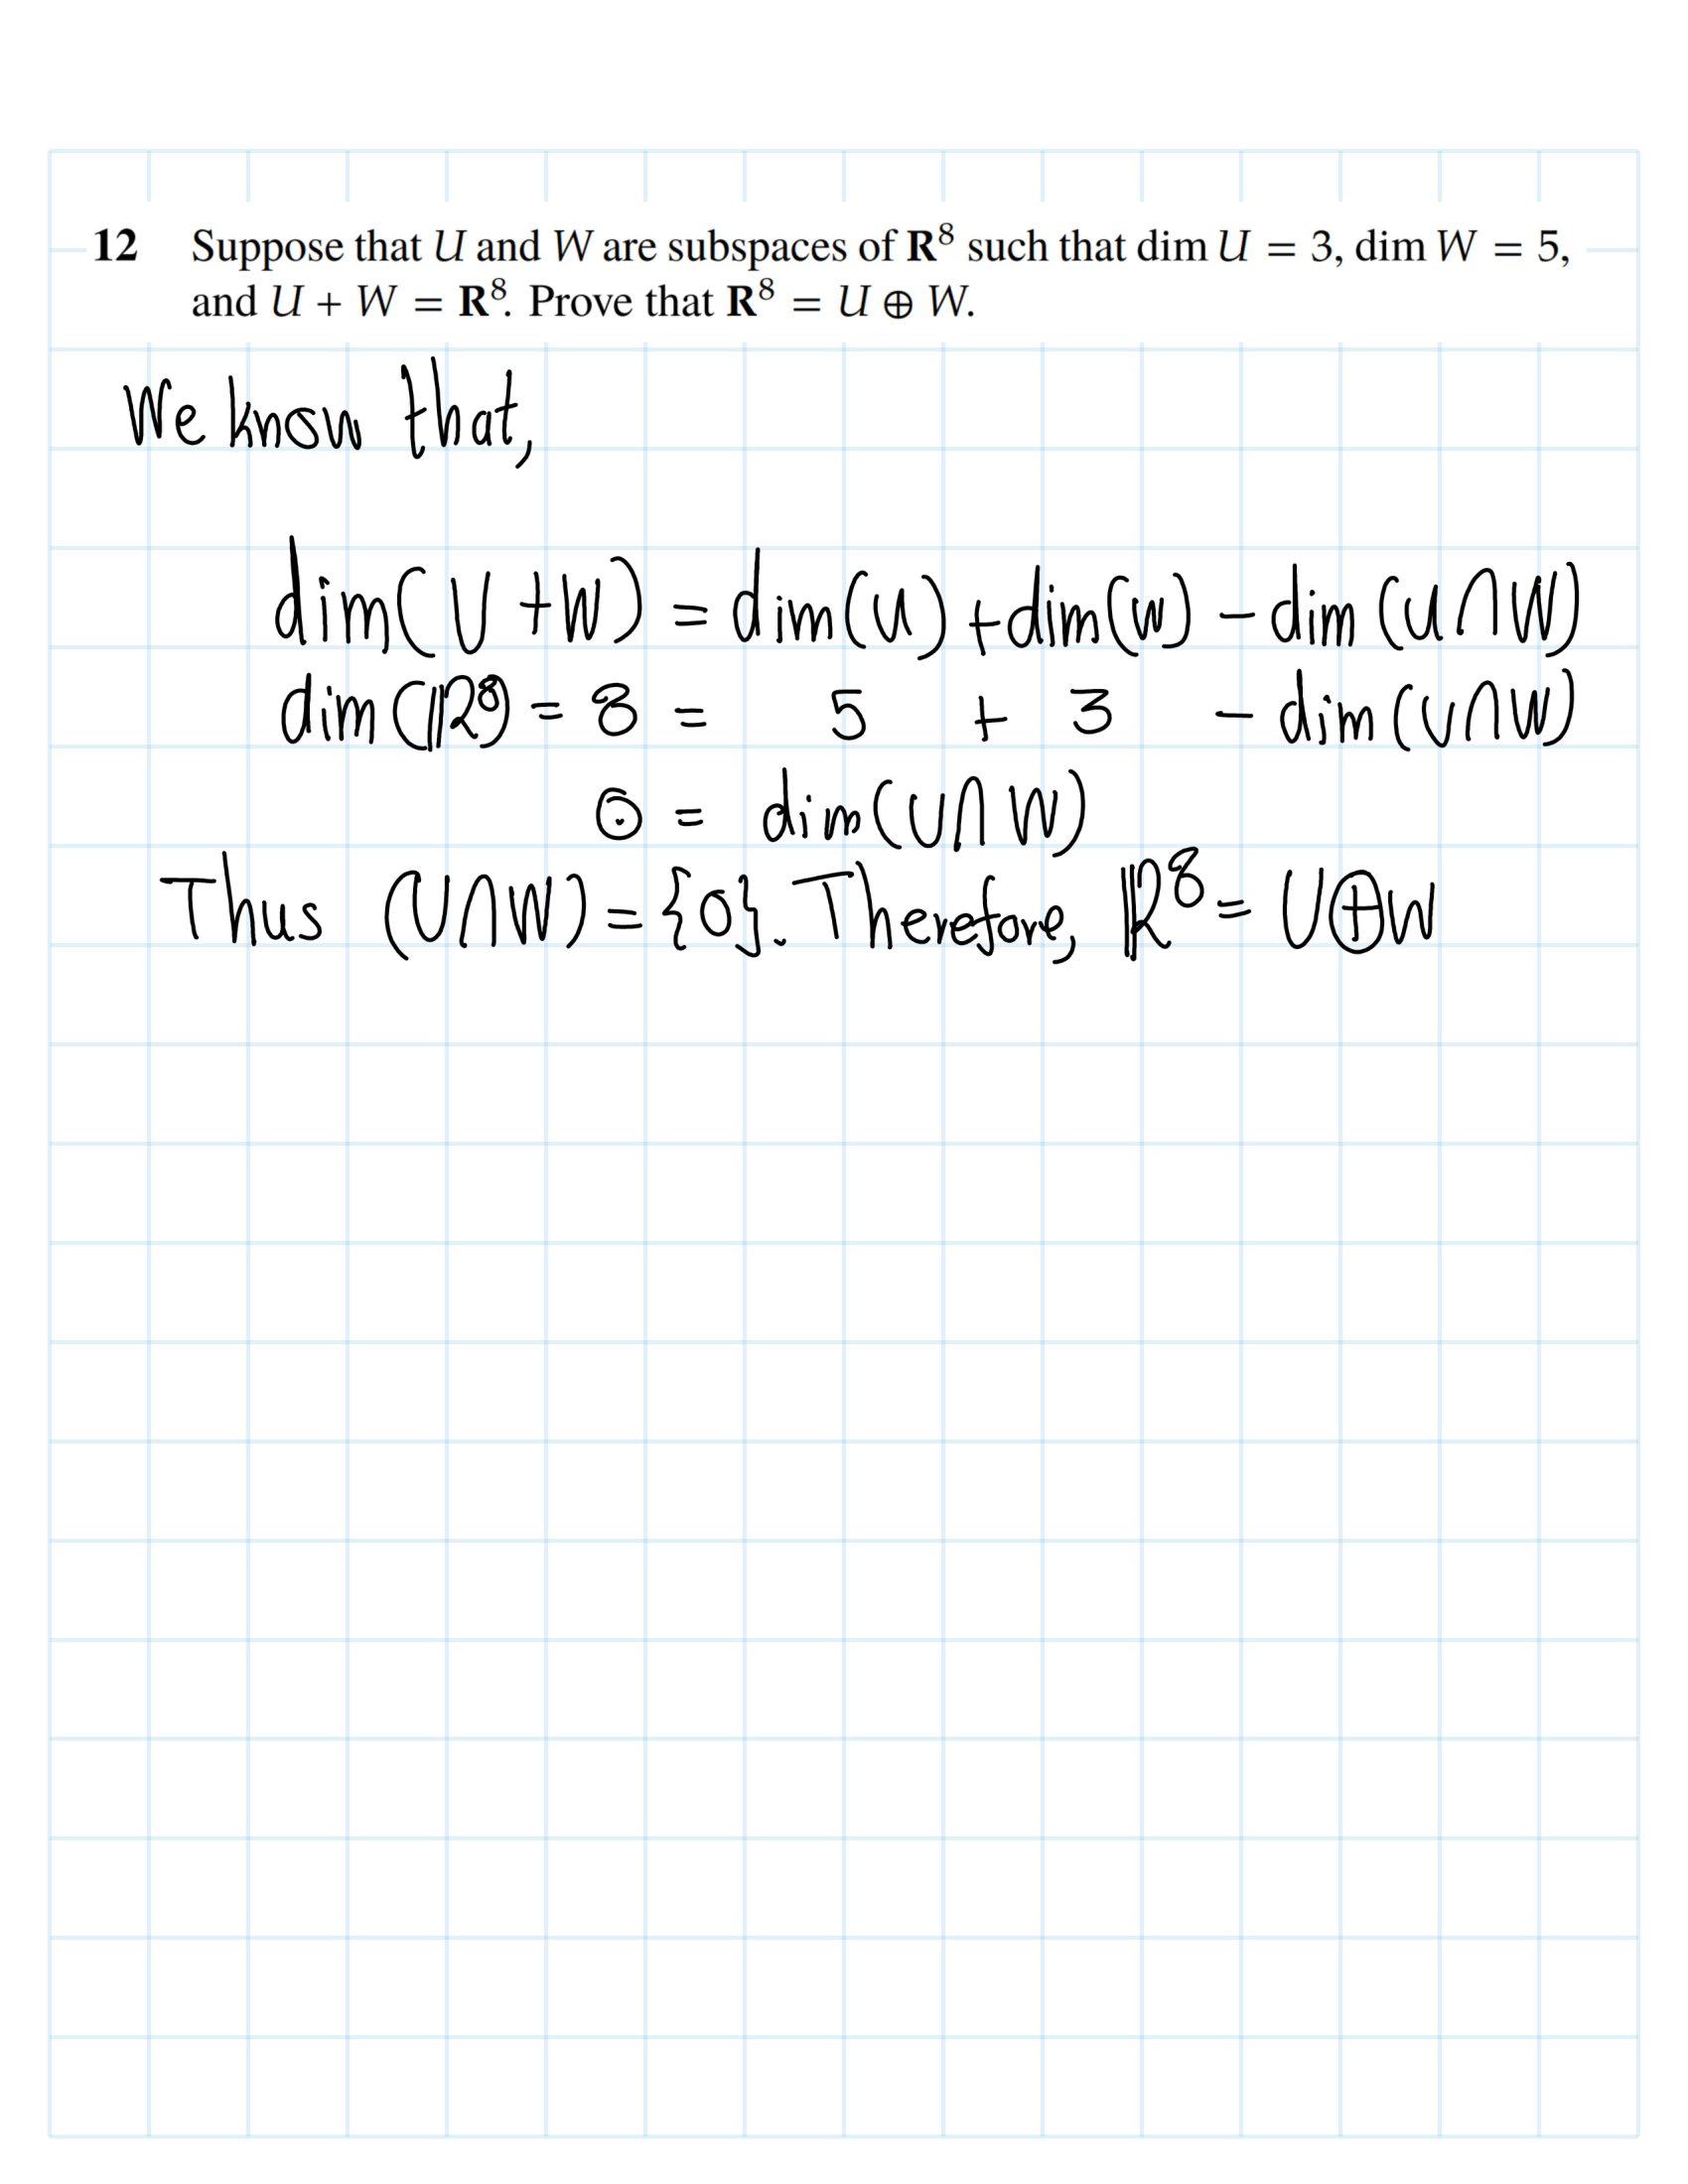 12 Suppose that U and W are subspaces of R⁸ such that dim U = 3, dim W = 5,
and U + W = R⁸. Prove that R⁸ = U ⊕ W.
We know that,
dim(U+W) = dim(U)+dim(W) - dim(U∩W)
dim(ℝ⁸) = 8 = 5 + 3 - dim(U∩W)
0 = dim(U∩W)
Thus (U∩W) = {0}. Therefore, ℝ⁸ = U⊕W